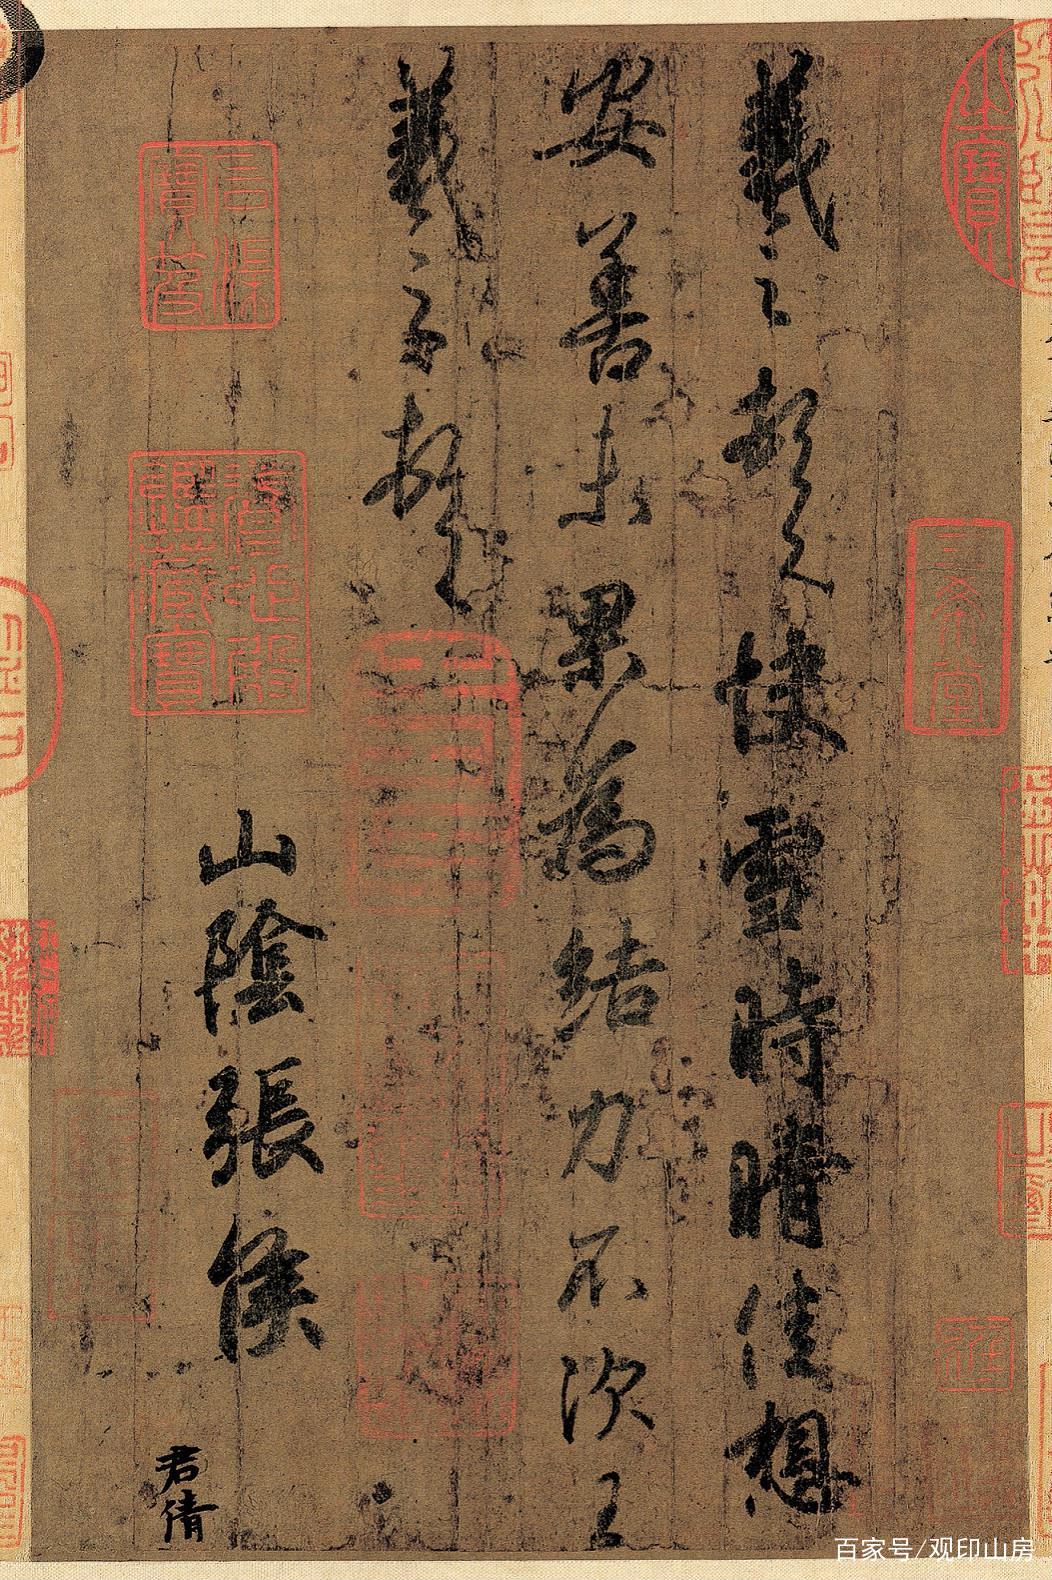 羲之頓首快雪時晴佳想
安善未果為結力不次王
羲之頓首
山陰張侯
君倩
三希堂
百家号/观印山房